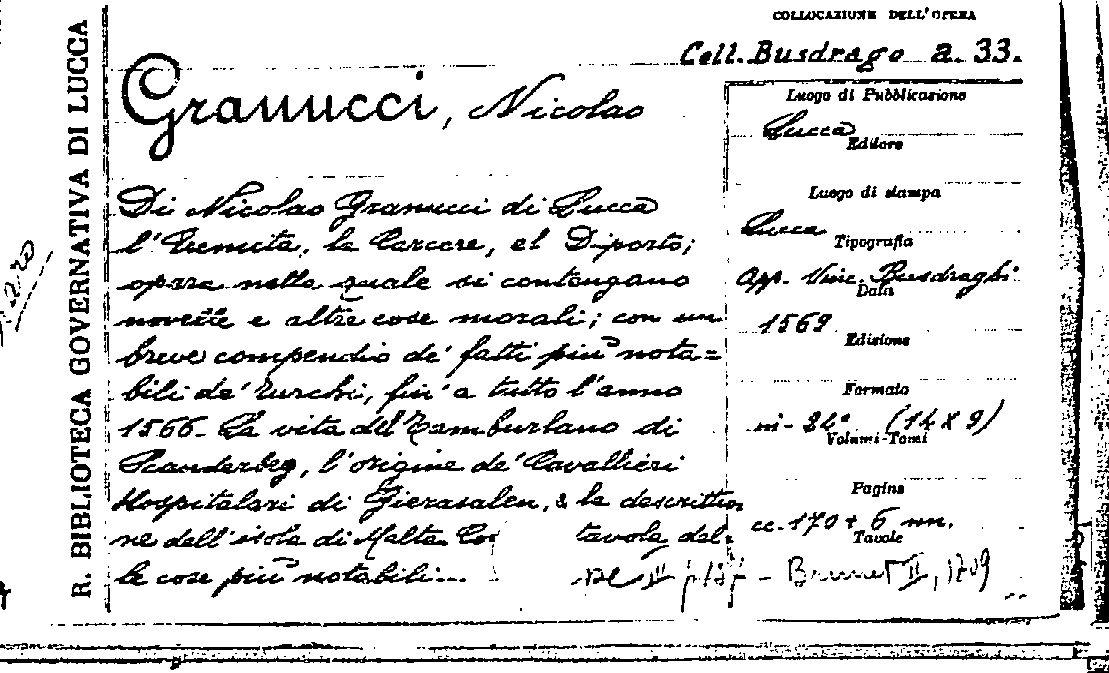 COLLOCAZIONE DELL'OPERA
Coll. Busdrago a. 33.
R. BIBLIOTECA GOVERNATIVA DI LUCCA
Granucci, Nicolao
Di Nicolao Granucci di Lucca
l'Eremita, la Carcere, el Diporto;
opera nella quale si contengano
novelle e altre cose morali; con un
breve compendio de' fatti più nota=
bili de' Turchi, fin' a tutto l'anno
1566. La vita del Tamburlano di
Scanderbeg, l'origine de' Cavallieri
Hospitalari di Gierusalen, & la descrittio
ne dell'isola di Malta. Co tavola del
le cose più notabili...
Brunet II, 1709
Luogo di Pubblicazione
Lucca
Editore
Luogo di stampa
Lucca
Tipografia
app. Vinc. Busdraghi
Data
1569
Edizione
Formato
in-24° (14 x 9)
Volumi-Tomi
Pagine
cc. 170 + 6 nn.
Tavole